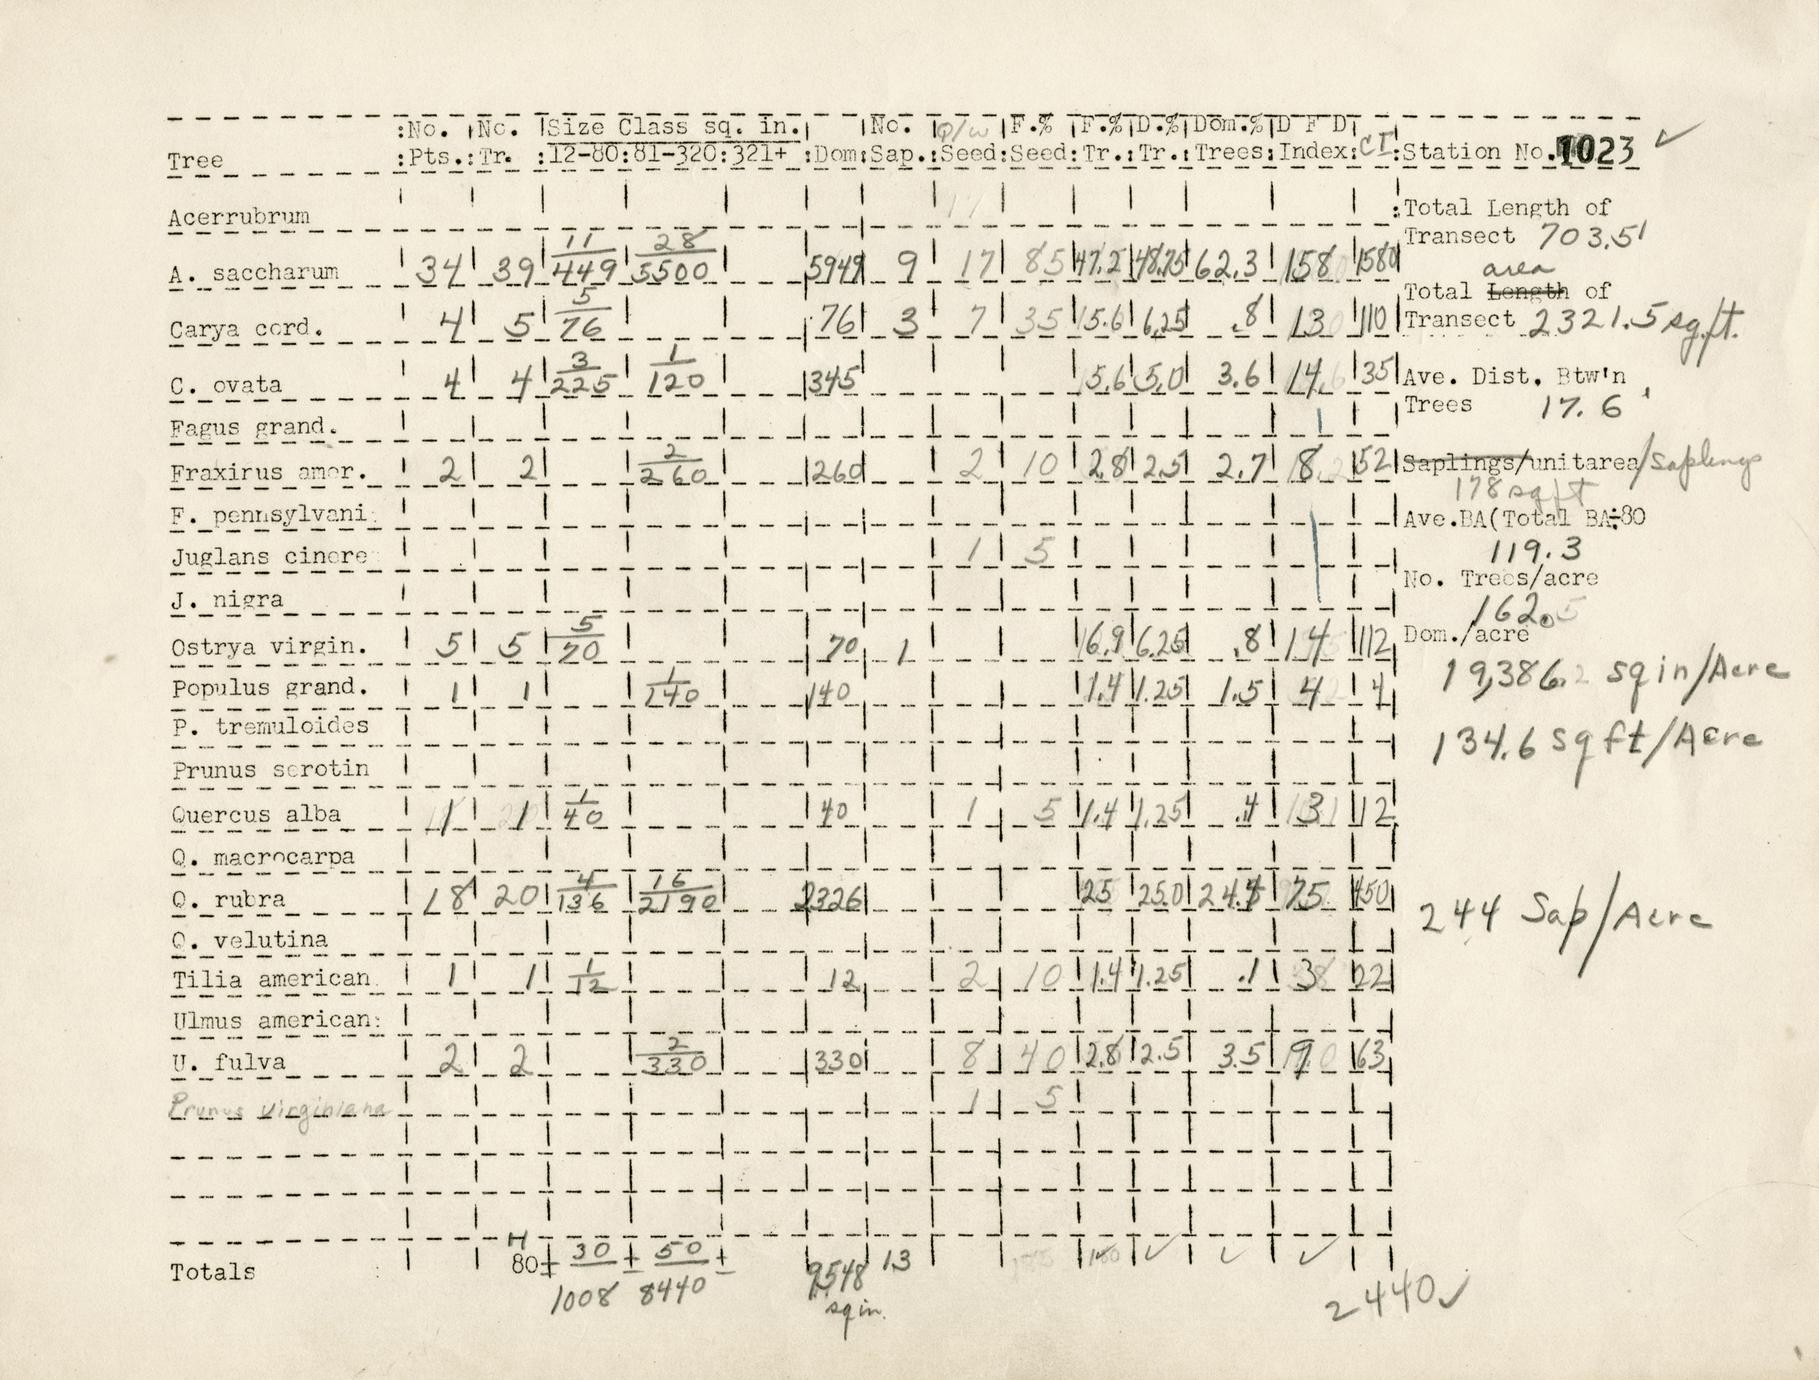 No. No. Size Class sq. in. No. Q/w F.% F.% D.% Dom.% D F D
Tree Pts. Tr. 12-80 81-320 321+ Dom Sap. Seed Seed Tr. Tr. Trees Index CI Station No. 1023 ✓
Acerrubrum
Total Length of
Transect 703.5'
A. saccharum 34 39 11/449 28/5500 5949 9 17 85 47.2 48.75 62.3 158 1580
area
Total Length of
Carya cord. 4 5 5/76 76 3 7 35 5.6 6.25 .8 13 110 Transect 2321.5 sq.ft.
C. ovata 4 4 3/225 1/120 345 5.6 5.0 3.6 14 35 Ave. Dist. Btw'n
Trees 17.6'
Fagus grand.
Fraxirus amer. 2 2 2/260 260 2 10 2.8 2.5 2.7 8 52 Saplings/unitarea/saplings
178 sq ft
F. pennsylvani Ave.BA(Total BA÷80
Juglans cinere 1 5 119.3
No. Trees/acre
J. nigra 162.5
Ostrya virgin. 5 5 5/70 70 1 6.9 6.25 .8 14 112 Dom./acre
19,386.2 sq in/Acre
Populus grand. 1 1 1/140 140 1.4 1.25 1.5 4 4
P. tremuloides 134.6 sq ft/Acre
Prunus serotin
Quercus alba 1 1 1/40 40 1 5 1.4 1.25 .4 3 12
Q. macrocarpa
Q. rubra 18 20 4/136 16/2190 2326 25 25.0 24.4 75 450 244 Sap/Acre
Q. velutina
Tilia american 1 1 1/12 12 2 10 1.4 1.25 .1 3 22
Ulmus american
U. fulva 2 2 2/330 330 8 40 2.8 2.5 3.5 9 63
Prunus virginiana 1 5
Totals 80 ± 30/1008 ± 50/8440 ± 9548 13 ✓ ✓ ✓
sq in.
2440 ✓